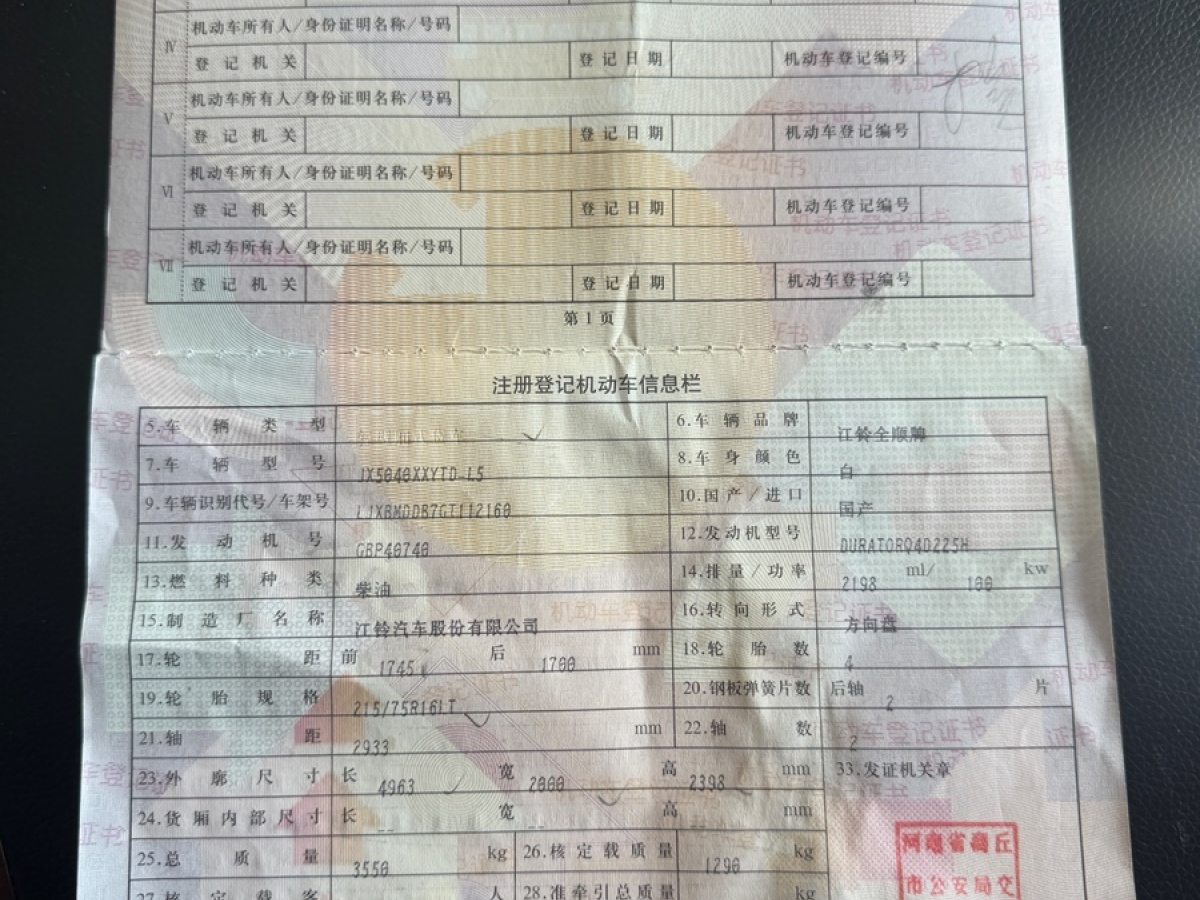 Ⅳ 机动车所有人/身份证明名称/号码
登记机关 登记日期 机动车登记编号
Ⅴ 机动车所有人/身份证明名称/号码
登记机关 登记日期 机动车登记编号
Ⅵ 机动车所有人/身份证明名称/号码
登记机关 登记日期 机动车登记编号
Ⅶ 机动车所有人/身份证明名称/号码
登记机关 登记日期 机动车登记编号
第1页
注册登记机动车信息栏
5.车辆类型 6.车辆品牌 江铃全顺牌
7.车辆型号 JX5040XXYTD-L5 8.车身颜色 白
9.车辆识别代号/车架号 LJXBMDDB7GT112160 10.国产/进口 国产
11.发动机号 GBP40740 12.发动机型号 DURATORQ4D225H
13.燃料种类 柴油 14.排量/功率 2198 ml/ 100 kw
15.制造厂名称 江铃汽车股份有限公司 16.转向形式 方向盘
17.轮距 前 1745 后 1700 mm 18.轮胎数 4
19.轮胎规格 215/75R16LT 20.钢板弹簧片数 后轴 2 片
21.轴距 2933 mm 22.轴数 2
23.外廓尺寸 长 4963 宽 2000 高 2398 mm 33.发证机关章
24.货厢内部尺寸 长 -- 宽 -- 高 -- mm
25.总质量 3550 kg 26.核定载质量 1290 kg
27.核定载客 人 28.准牵引总质量 kg
河南省商丘
市公安局交